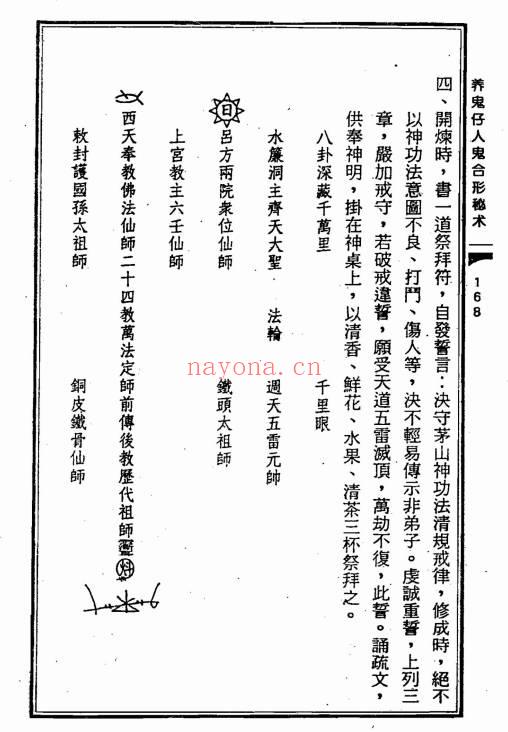 养鬼仔人鬼合形秘术
168
四、開煉時，書一道祭拜符，自發誓言：決守茅山神功法清規戒律，修成時，絕不
以神功法意圖不良、打鬥、傷人等，決不輕易傳示非弟子。虔誠重誓，上列三
章，嚴加戒守，若破戒違誓，願受天道五雷滅頂，萬劫不復，此誓。誦疏文，
供奉神明，掛在神桌上，以清香、鮮花、水果、清茶三杯祭拜之。
八卦深藏千萬里 千里眼
水簾洞主齊天大聖 法輪 週天五雷元帥
日 呂方兩院衆位仙師 鐵頭太祖師
上宮教主六壬仙師
西天奉教佛法仙師二十四教萬法定師前傳後教歷代祖師
敕封護國孫太祖師 銅皮鐵骨仙師
nayona.cn